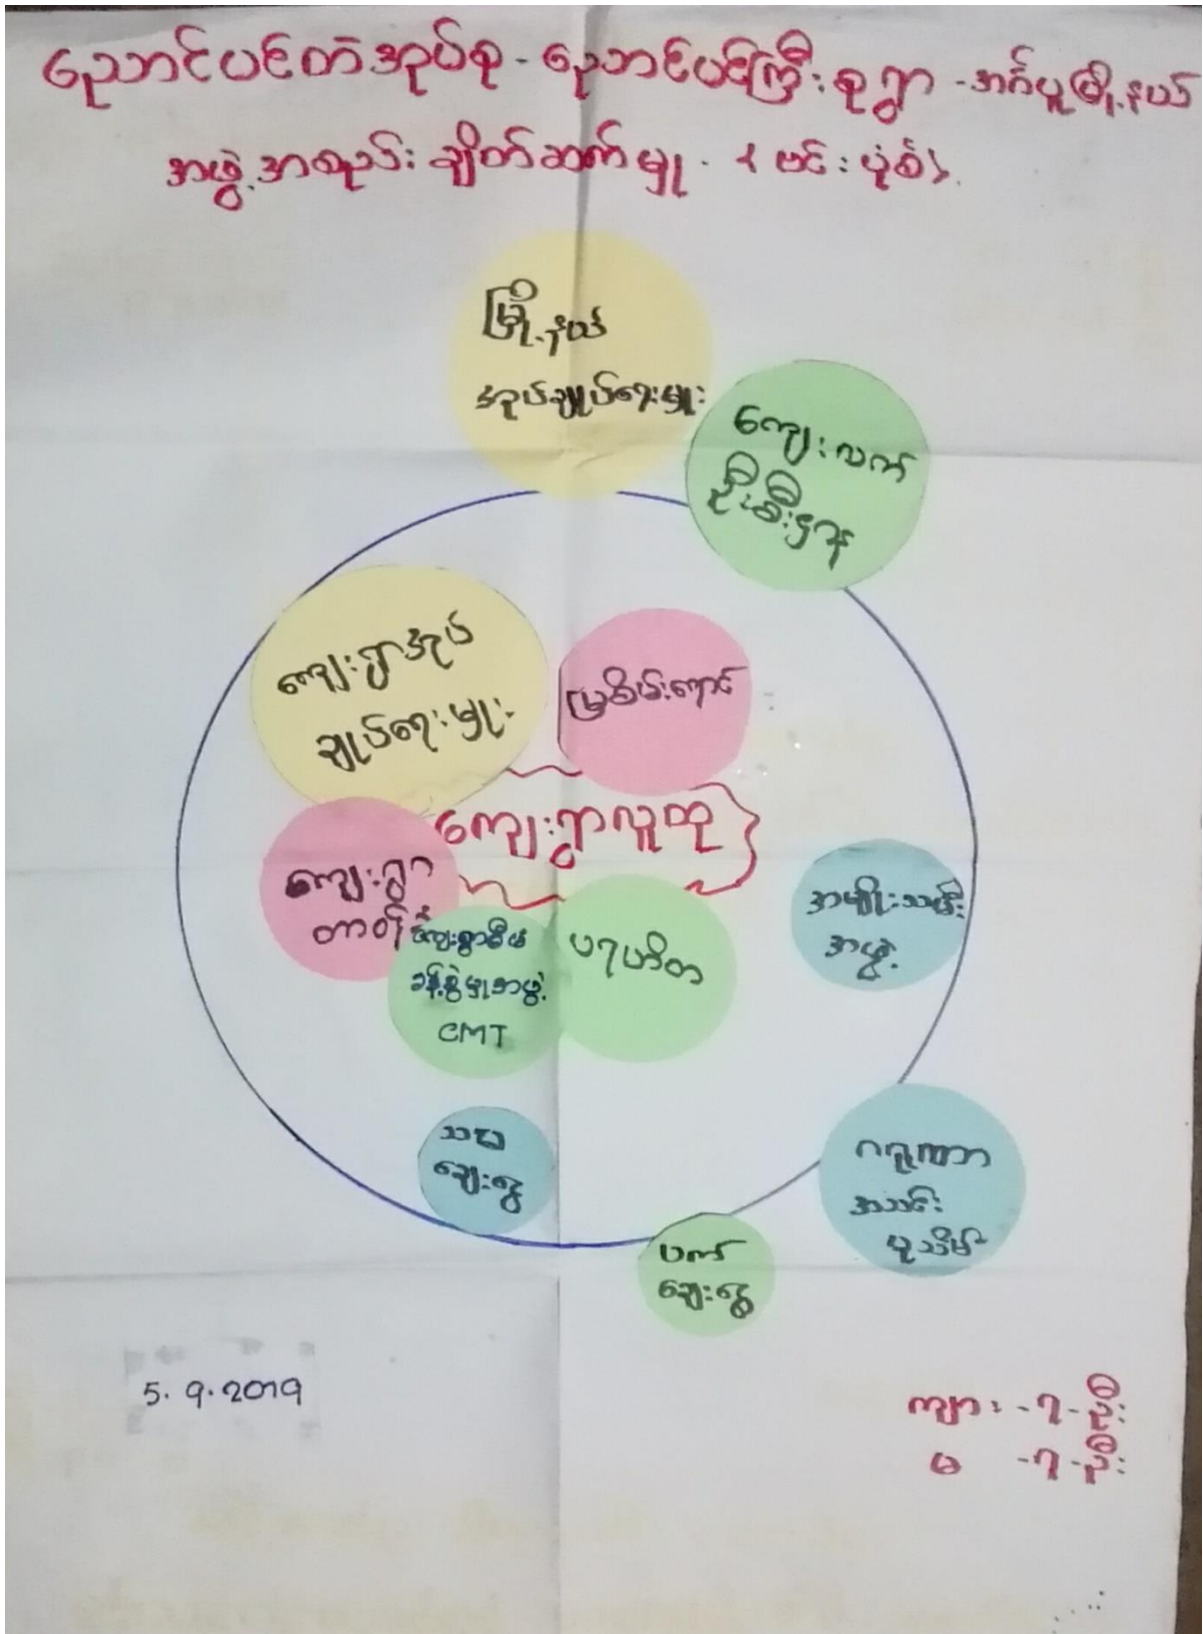 ညောင်ပင်တဲအုပ်စု - ညောင်ပင်ကြီးစုရွာ - အင်္ဂပူမြို့နယ်
အဖွဲ့အစည်းချိတ်ဆက်မှု - < ဗင်းပုံစံ >
မြို့နယ်
အုပ်ချုပ်ရေးမှူး
ကျေးလက်
ဦးစီးဌာန
ကျေးရွာအုပ်
ချုပ်ရေးမှူး
မြစိမ်းရောင်
ကျေးရွာလူထု
ကျေးရွာ
ကျေးရွာစီမံ
ခန့်ခွဲမှုအဖွဲ့
CMT
ပရဟိတ
အမျိုးသမီး
အဖွဲ့
သမ
ချေးငွေ
ဂရုဏာ
အသင်း
ပုသိမ်
ပက်
ချေးငွေ
5.9.2019
ကျား - ၇ - ဦး
မ - ၇ - ဦး